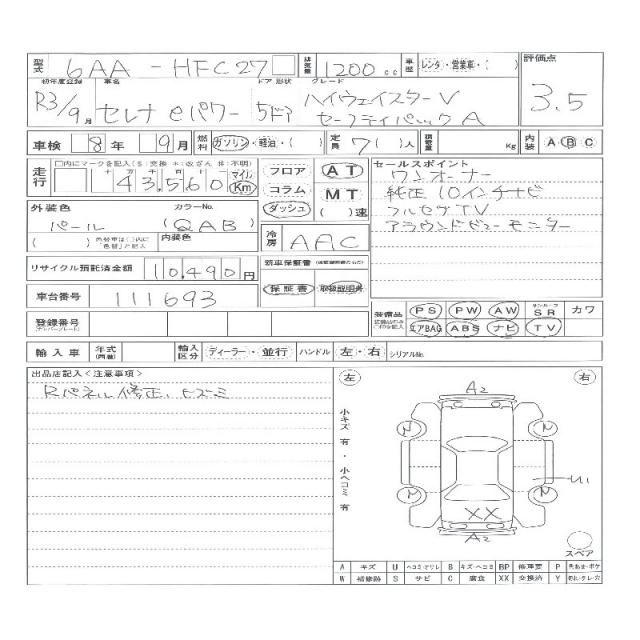 型式 6AA - HFC27 排気量 1200cc 車歴 レンタ・営業車・( ) 評価点
初年度登録 車名 ドア 形状 グレード
R3/9月 セレナ eパワー 5ドア ハイウェイスターV 3.5
セーフティパックA
車検 8年 9月 燃料 ガソリン・軽油・( ) 定員 7( )人 積載量 Kg 内装 A B C
走行 □内にマークを記入(S:交換 *:改ざん #:不明)
十 万 千 百 十 一 マイル
43,560 Km
フロア AT
コラム MT
ダッシュ ( )速
セールスポイント
ワンオーナー
純正10インチナビ
フルセグTV
アラウンドビューモニター
外装色 カラーNo.
パール (QAB)
( ) 色替車は( )内に「色替」と記入 内装色
冷房 AAC
リサイクル預託済金額 10,490円 新車保証書
車台番号 111693 保証書 取扱説明書
登録番号
装備品 PS PW AW サンルーフ SR カワ
エアBAG ABS ナビ TV
輸入車 年式(西暦) 輸入区分 ディーラー・並行 ハンドル 左・右 シリアルNo.
出品店記入<注意事項>
Rパネル修正、ヒズミ
左 右
小キズ 有・小ヘコミ 有
A2
N N
U1
N N
XX
A2
スペア
A キズ U ヘコミ・デワレ B キズ・ヘコミ BP 修理要 P
W 補修跡 S サビ C 腐食 XX 交換済 Y